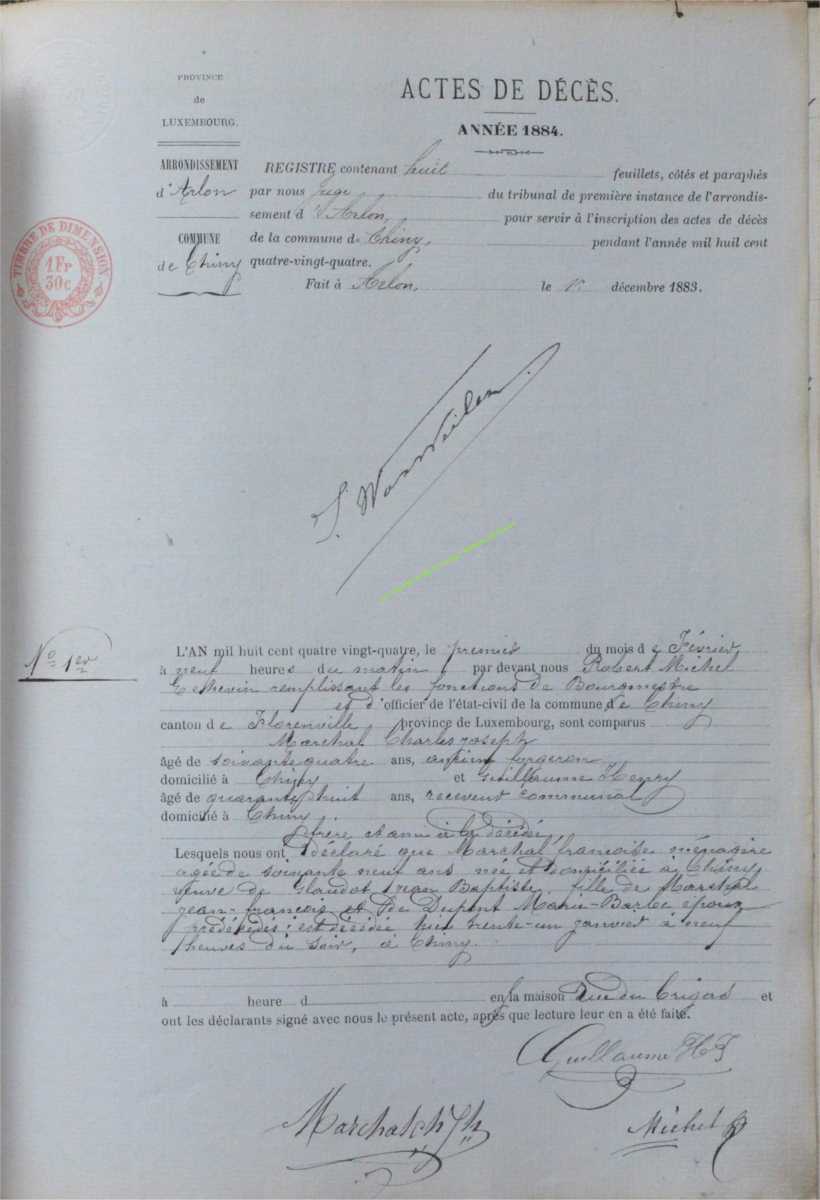 PROVINCE
de
LUXEMBOURG.
ACTES DE DÉCÈS.
ANNÉE 1884.
ARRONDISSEMENT
d'Arlon
COMMUNE
de Chiny
TIMBRE DE DIMENSION
1 Fr
30c
REGISTRE contenant huit feuillets, côtés et paraphés
par nous Juge du tribunal de première instance de l'arrondis-
sement d'Arlon, pour servir à l'inscription des actes de décès
de la commune de Chiny, pendant l'année mil huit cent
quatre-vingt-quatre.
Fait à Arlon, le décembre 1883.
No 1er
L'AN mil huit cent quatre vingt-quatre, le premier du mois de Février
à neuf heures du matin, par devant nous Robert Michel
Echevin remplissant les fonctions de Bourgmestre
et d'officier de l'état-civil de la commune de Chiny
canton de Florenville, province de Luxembourg, sont comparus
Marchal Charles Joseph
âgé de soixante quatre ans, ancien forgeron
domicilié à Chiny et Guillaume Henry
âgé de quarante huit ans, receveur communal
domicilié à Chiny.
frère et ami à la décédée,
Lesquels nous ont déclaré que Marchal françoise ménagère
agée de soixante neuf ans née et domiciliée à Chiny,
veuve de Glaudot Jean Baptiste, fille de Marchal
jean-françois et de Dupont Marie-Barbe époux
prédécédés; est décédée hier trente-un janvier à neuf
heures du soir, à Chiny.
à heure d en la maison Rue du et
ont les déclarants signé avec nous le présent acte, après que lecture leur en a été faite.
Guillaume HJ
Marchal Ch Jh
Michel R